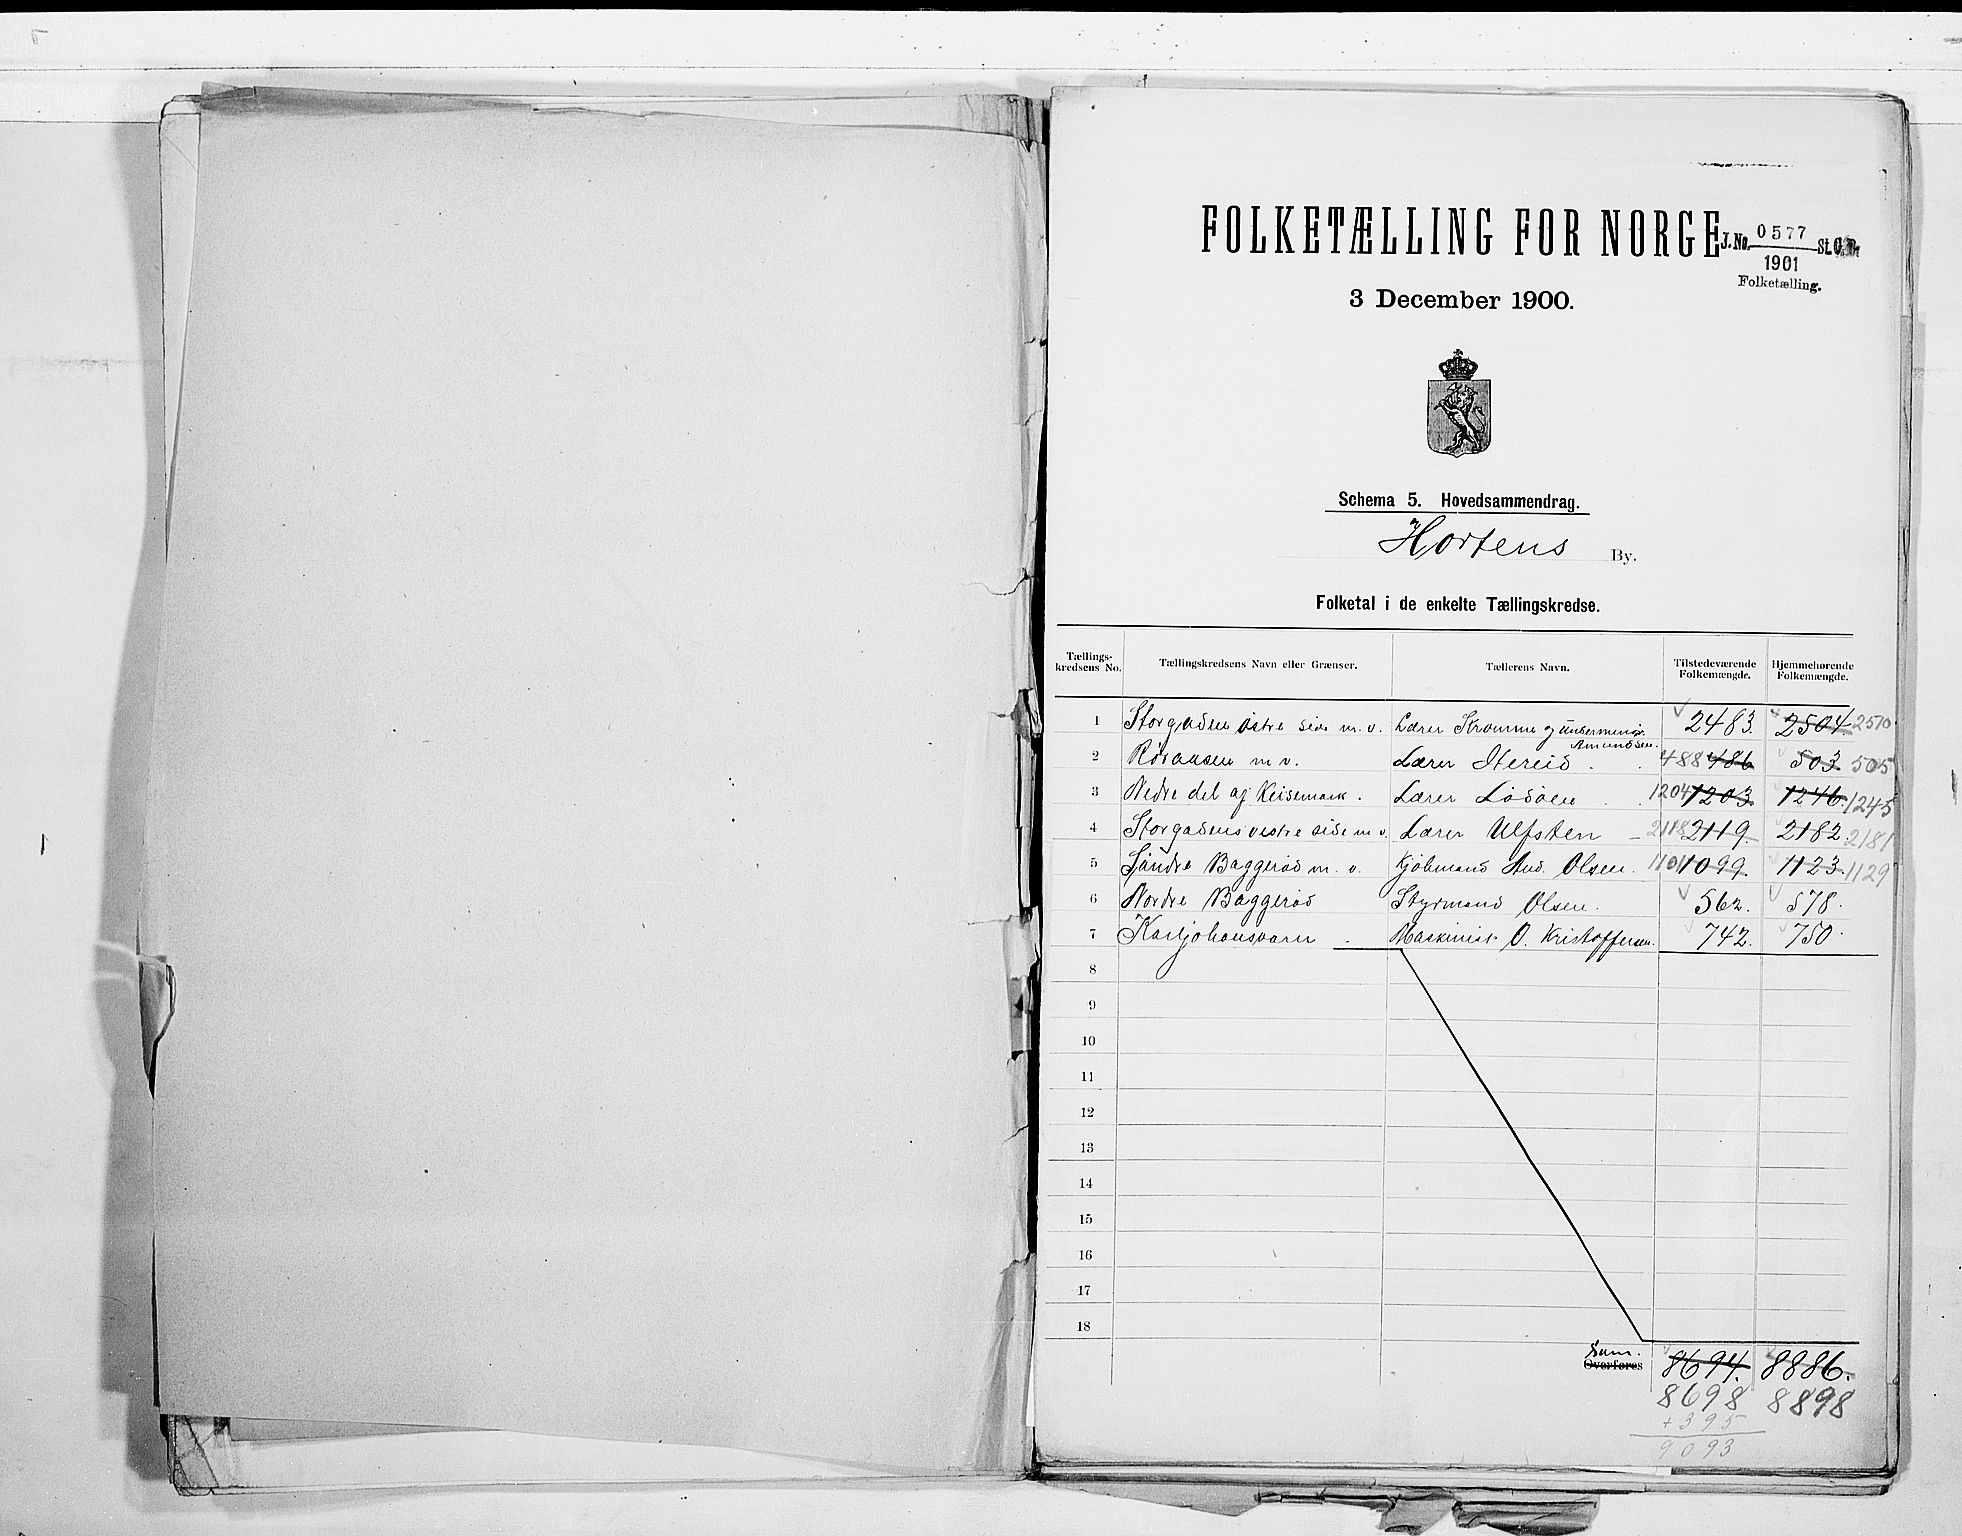 FOLKETÆLLING FOR NORGE
J. No. 0577 St. C. B.
1901
Folketælling.
3 December 1900.
Schema 5. Hovedsammendrag.
Hortens By.
Folketal i de enkelte Tællingskredse.
Tællings-kredsens No. Tællingskredsens Navn eller Grænser. Tællerens Navn. Tilstedeværende Folkemængde. Hjemmehørende Folkemængde.
1 Storgadens østre side m. v. Lærer Kromme og Underminør Amundsen. 2483. 2504 2510
2 Rørausen m v. Lærer Hereid 488 486 503 505
3 Nedre del af Keisemark. Lærer Lødøen 1204 1203 1246 1245
4 Storgadens vestre side m v. Lærer Ulfsten 2118 2119 2182 2181
5 Søndre Baggerød m. v. Kjøbmand And. Olsen. 1101 1099 1123 1129
6 Nordre Baggerød Styrmand Olsen. 562. 578.
7 Karljohansværn Maskinist O. Kristoffersen. 742. 750.
8
9
10
11
12
13
14
15
16
17
18
Sum.
Overføres 8694. 8886.
8698 8898
+ 395
9093